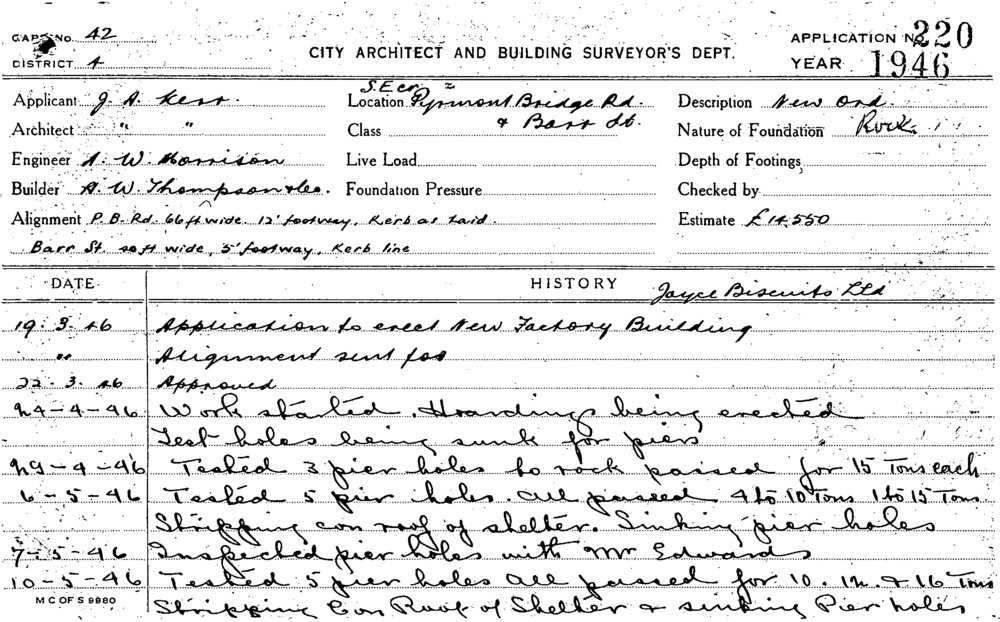 CARD No. 42
DISTRICT 4
CITY ARCHITECT AND BUILDING SURVEYOR'S DEPT.
APPLICATION No. 220
YEAR 1946
Applicant J. A. Kerr.
Location S.E cnr Pyrmont Bridge Rd. & Barr St.
Description New Ord
Architect " "
Class
Nature of Foundation Rock
Engineer A. W. Morrison
Live Load
Depth of Footings
Builder A. W. Thompson & Co.
Foundation Pressure
Checked by
Alignment P.B. Rd. 66ft wide. 12' footway, Kerb as laid.
Estimate £14,550
Barr St. 50ft wide, 5' footway, Kerb line
DATE HISTORY Joyce Biscuits Ltd
19. 3. 46 Application to erect New Factory Building
" Alignment sent for
22. 3. 46 Approved
24-4-46 Work started. Hoardings being erected
Test holes being sunk for piers
29-4-46 Tested 3 pier holes to rock passed for 15 Tons each
6-5-46 Tested 5 pier holes. All passed 4 to 10 Tons 1 to 15 Tons
Stripping con roof of shelter. Sinking pier holes
7-5-46 Inspected pier holes with Mr Edwards
10-5-46 Tested 5 pier holes all passed for 10. 12. & 16 Tons
M C OF S 9980
Stripping Con Roof of Shelter & sinking Pier holes